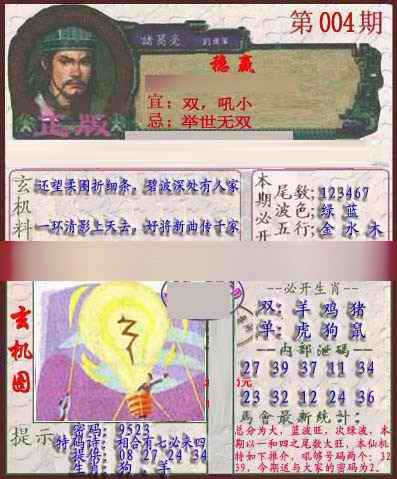 第004期
諸葛亮
稳赢
宜：双，吼小
忌：举世无双
正版
玄机料
还望柔围折细条，碧波深处有人家
一环清影上天去，好将新曲传千家
本期必开
尾数：123467
波色：绿 蓝
五行：金 水 木
玄机图
必开生肖
双：羊 鸡 猪
单：虎 狗 鼠
内部泄码
27 39 37 11 30 34
23 32 12 24 36
馬會最新統計：
总分为大，蓝波旺，次绿波，本
期以一和四之尾数大旺，本仙机
特如下推介，吼够号码两个：32
39，今期送与大家的密码为2.
提示
密码：9523
特码诗：相合有七必来四
提供：08 27 24 34
生肖：狗，羊